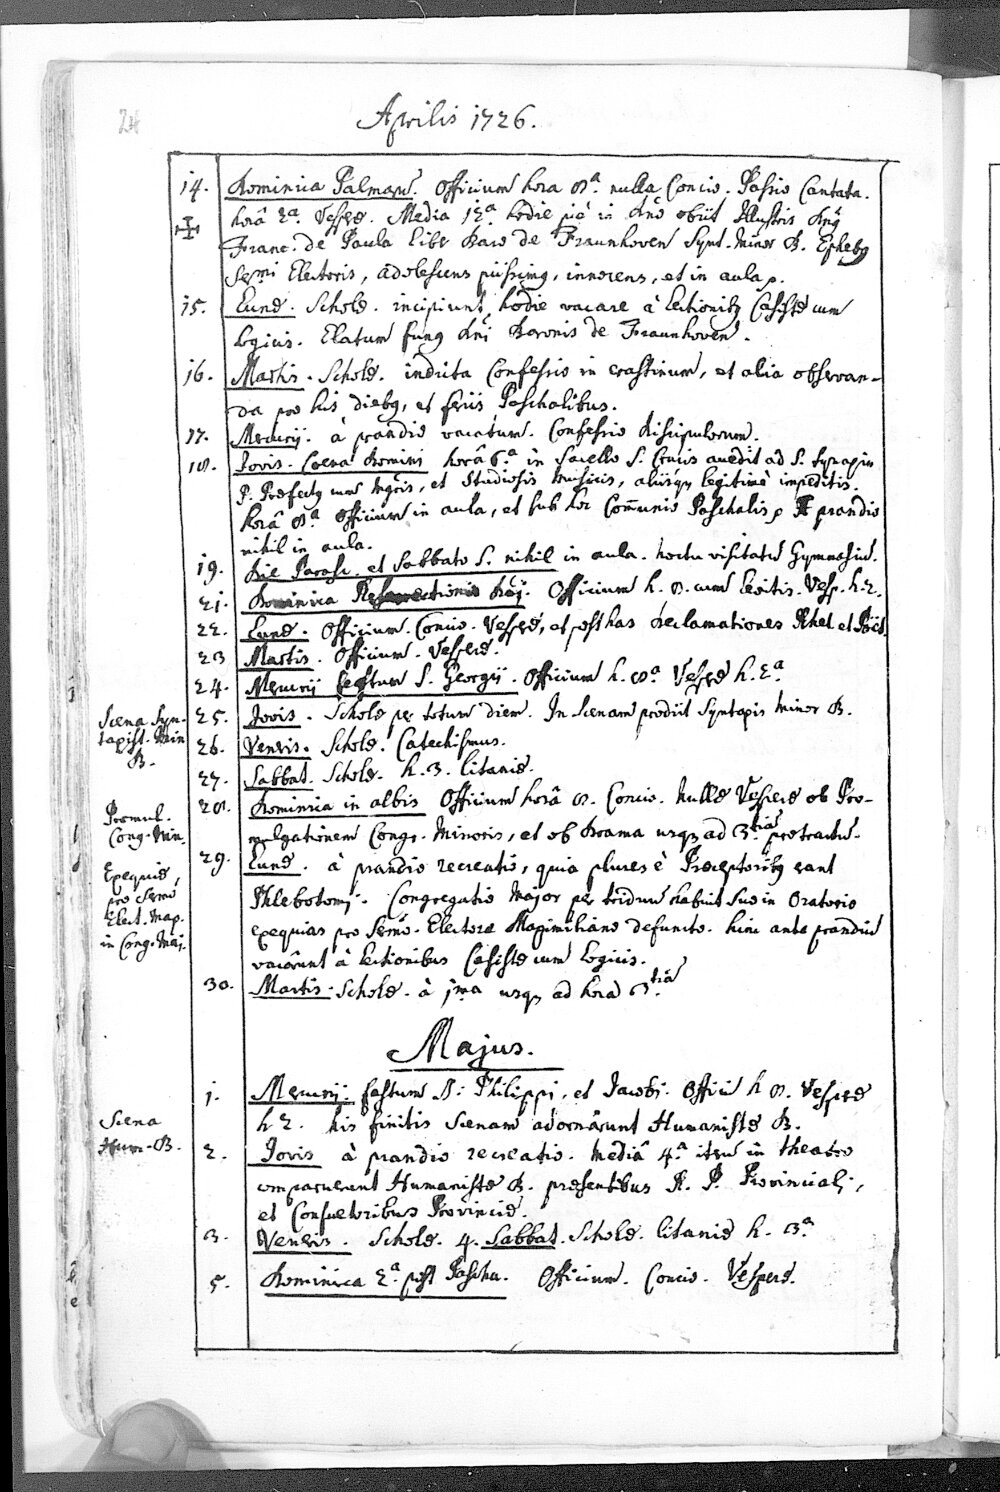 24
Aprilis 1726.
14. Dominica Palmarum. Officium hora 8.a nulla Concio. Passio Cantata.
horâ 2.a Vesperæ. Media 12.a hodie piè in Dno obiit Illustris Dnus
Franc. de Paula liber Baro de Fraunhoven Synt. Minor B. Ephebus
Sermi Electoris, adolescens piissimus, innocens, et in aula
15. Lunæ. Scholæ. incipiunt hodie vacare à lectionibus Casistæ cum
Logicis. Elatum funus Dni Baronis de Fraunhoven.
16. Martis. Scholæ. indicta Confessio in crastinum, et alia observan-
da pro his diebus, et feriis Paschalibus.
17. Mercurij. à prandio vacatum. Confessio discipulorum.
18. Jovis. Coena Domini horâ 6.a in Sacello S. Crucis accedit ad S. Synaxin
P. Præfectus cum Mgris, et Studiosis Musicis, aliisque legitimè impeditis.
horâ 8.a Officium in aula, et sub hoc Com̄unio Paschalis, prandio
nihil in aula.
19. Die Parasc. et Sabbato S. nihil in aula. noctu visitatur Gymnasium.
21. Dominica Resurrectionis Dnj. Officium h. 8. cum Levitis. Vesp. h. 2.
22. Lunæ. Officium. Concio. Vesperæ, et post has declamationes Rhet. et Poët.
23 Martis. Officium. Vesperæ.
24. Mercurij festum S. Georgij. Officium h. 8.a Vesperæ h. 2.a
Scena Syn-
taxist. Min
B.
25. Jovis. Scholæ per totum diem. In Scenam prodiit Syntaxis Minor B.
26. Veneris. Scholæ. Catechismus.
27. Sabbat. Scholæ. h. 3. litaniæ.
Promul.
Cong. Min.
28. Dominica in albis Officium horâ 8. Concio. Nullæ Vesperæ ob Pro-
mulgationem Congr. Minoris, et ob Drama usque ad 3.tiam protractum.
Exequiæ
pro Sermo
Elect. Max.
in Cong. Maj.
29. Lunæ. à prandio recreatio, quia plures è Præceptoribus erant
Phlebotomi. Congregatio Major per triduum habuit suo in Oratorio
exequias pro Sermo. Electore Maximiliano defuncto. hinc ante prandium
vacârunt à lectionibus Casistæ cum Logicis.
30. Martis. Scholæ. à jma usque ad hora 3.tia
Majus.
1. Mercurij. festum SS. Philippi, et Jacobi. Offici h 8. Vesperæ
h 2. his finitis Scenam adornârunt Humanistæ B.
Scena
Hum. B.
2. Jovis à prandio recreatio. Mediâ 4.a iterum in theatro
comparuerunt Humanistæ B. præsentibus R. P. Provinciali,
et Consultoribus Provinciæ.
3. Veneris. Scholæ. 4. Sabbat. Scholæ. litaniæ h. 3.a
5. Dominica 2.a post Pascha. Officium. Concio. Vesperæ.